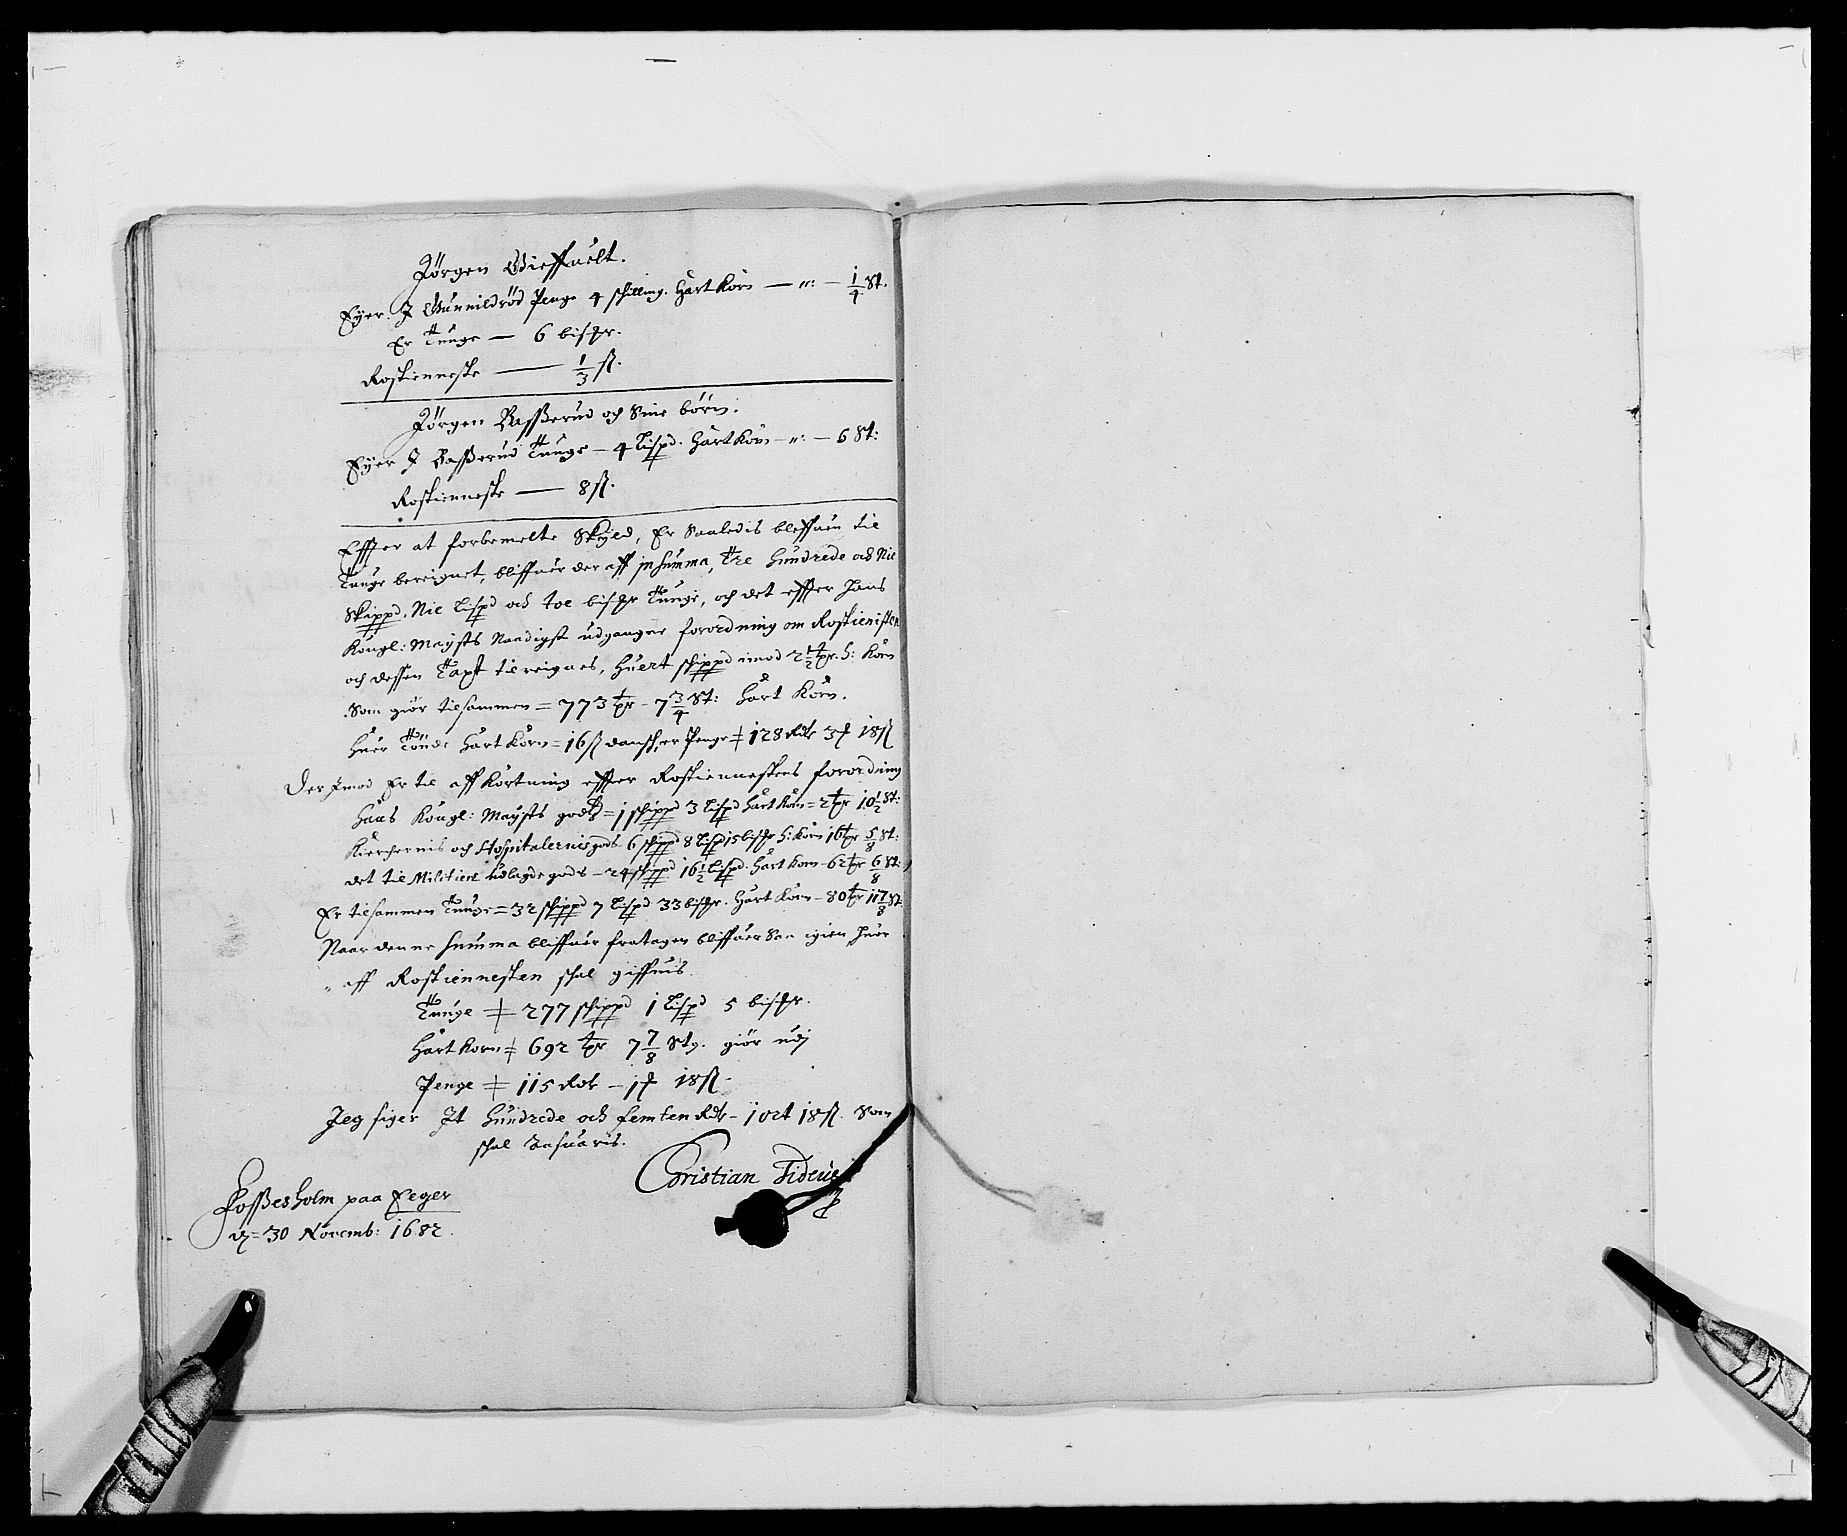 Jörgen Gieffuelt.
Eÿer J Gunnildröd Penge 4 schilling. Hart Korn — „: — 1/4 St.
Er Tunge — 6 bischr.
Rostienneste — 1/3 ſß.
Jörgen Basserud och Sine börn.
Eÿer J Basserud Tunge — 4 Lispd. Hart Korn — „: — 6 St:
Rostienneste — 8 ſß.
Effter at forbemelte Skÿld, Er Saaledis bleffuen til
Tunge bereignet, bliffuer der aff in Summa, Tre Hundrede och Nie
Skippd. Nie Lispd och toe bischr Tunge, och det effter Hans
Kongl: Maÿsts Naadigst udgangne forordning om Rostienisten
och dessen Taxt tilreignes, Huert schippd imod 2 1/2 tɟr. H: Korn
Som giör tilsammen = 773 tɟr - 7 3/4 St: Hart Korn.
Huer Tönde Hart Korn = 16 ſß dansch, er Penge = 128 Rdr 3 ꝑ 18 ſß
Der Jmod Er til aff Kortning effter Rostiennestens forordning
Hans Kongl: Maÿsts gods = 1 schippd 3 Lispd Hart Korn = 2 tɟr 10 1/2 St:
Kierchernis och Hospitalernis gods 6 schippd 8 Lispd 15 bischr H: Korn 16 tɟr 5/8 St:
det til Militien udlagde gods — 24 schippd 16 1/2 Lispd. Hart Korn - 62 tɟr 6/8 St:
Er tilsammen Tunge = 32 schippd 7 Lispd 33 bischr. Hart Korn - 80 tɟr 11 7/8 St.
Naar denne Summa bliffuer fratagen bliffuer Saa igien, Huor
aff Rostiennesten schal giffuis.
Tunge = 277 schippd 1 Lispd 5 bischr.
Hart Korn = 692 tɟr 7 7/8 St. giör udj
Penge = 115 Rdr — 1 ꝑ 18 ſß -
Jeg siger Jt Hundrede och femten Rdr - 1 ort 18 ſß. Som
schal Ansuaris.
Fossesholm paa Eeger
d. = 30 Novemb: 1682.
Christian